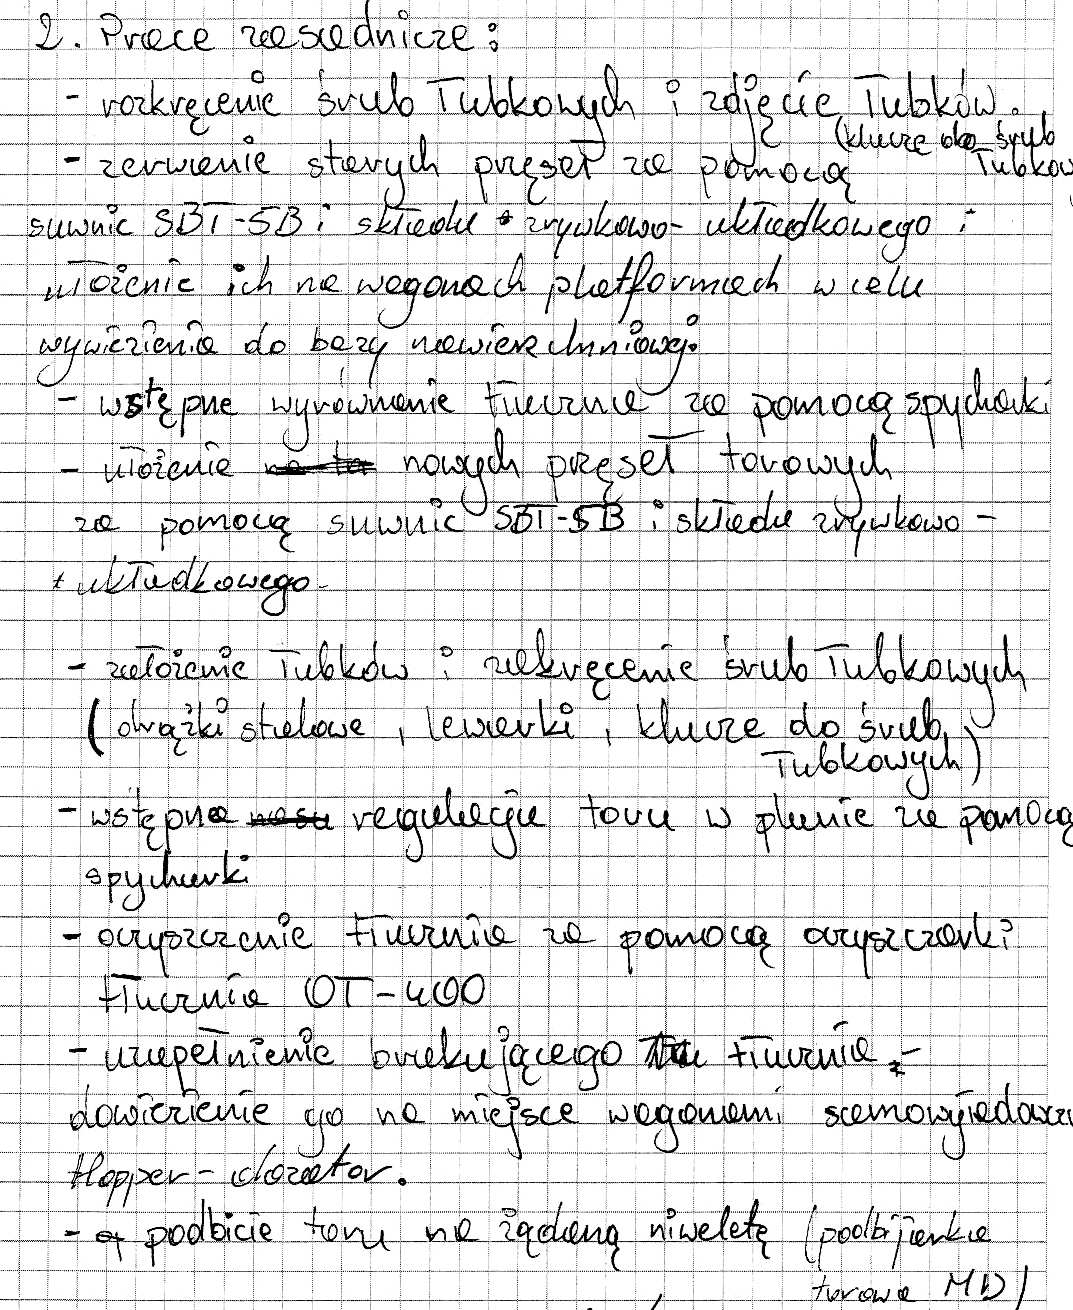 2. Prace zasadnicze:
- rozkręcenie śrub łubkowych i zdjęcie łubków.
(klucze do śrub
łubkow
- zerwanie starych przęseł za pomocą
suwnic SBT-SB i składu zrywkowo- układkowego i
ułożenie ich na wagonach platformach w celu
wywiezienia do bazy nawierzchniowej.
- wstępne wyrównanie tłucznia za pomocą spycharki
- ułożenie nowych przęseł torowych
za pomocą suwnic SBT-SB i składu zrywkowo -
układkowego
- założenie łubków i zakręcenie śrub łubkowych
(drążki stalowe, lewarki, klucze do śrub
łubkowych)
- wstępna regulacja toru w planie za pomocą
spycharki
- oczyszczenie tłucznia za pomocą oczyszczarki
tłucznia OT-400
- uzupełnienie brakującego tłucznia -
dowiezienie go na miejsce wagonami samowyładowcz
Hopper - dozator.
- podbicie toru na żądaną niweletę (podbijarka
torowa MD)